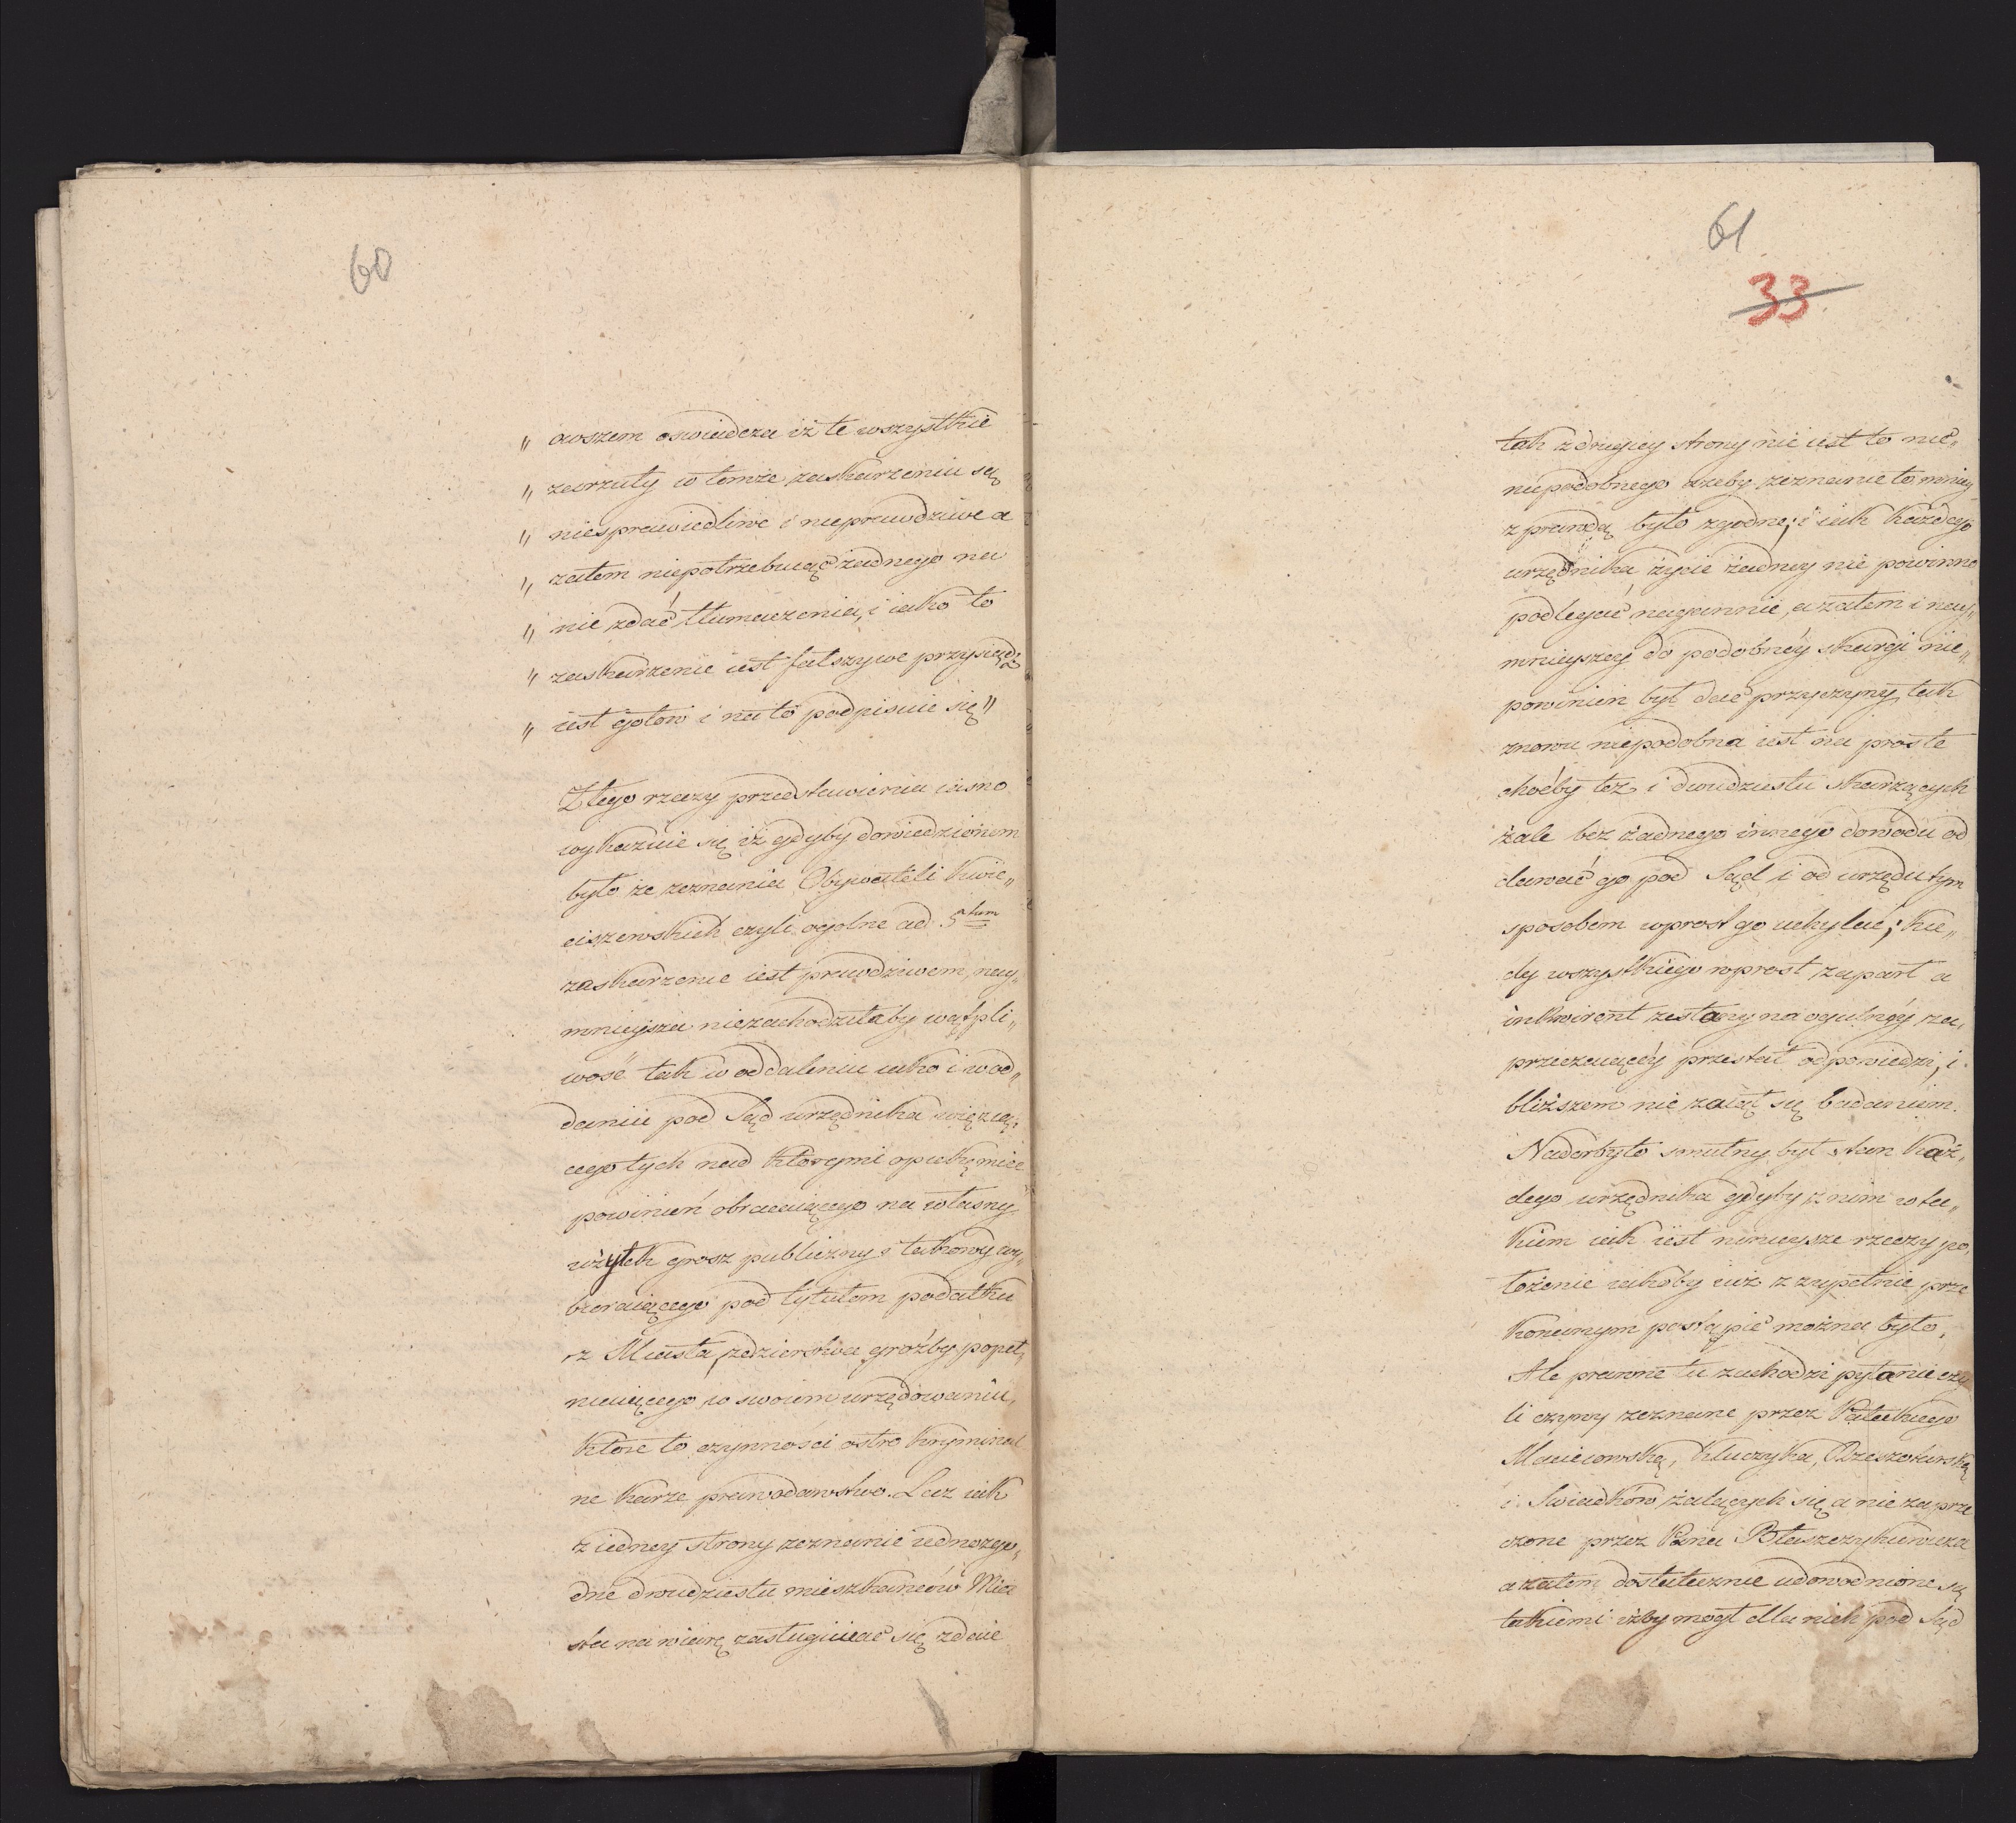 60
„ owszem oswiadcza iż te wszystkie
„ zarzuty w temże zaskarzeniu są
„ niesprawiedliwe i nieprawdziwe a
„ zatem niepotrzebuiąc żadnego na
„ nie zdać tłumaczenia, i iako to
„ zaskarżenie iest fałszywe przysiądz
„ iest gotow i na to podpisuie się „
Z tego rzeczy przedstawienia iasno
wykazuie się iż gdyby dowiedzionem
było że zeznania Obywateli Kwie„
ciszewskich czyli ogolne ad 5tum
zaskarzenie iest prawdziwem, nay„
mnieysza niezachodziłaby wątpli„
wość tak w oddaleniu iako i w od„
daniu pod Sąd urzędnika więzią„
cego tych nad ktoremi opiekę mieć
powinień obracaiącego na własny
użytek grosz publiczny i takowy wy„
bieraiącego pod tytułem podatku
z Miasta, zdzierstwa groźby popeł„
niaiącego w swoiem urzędowaniu,
ktore to czynnosci ostro kryminal
ne karze prawodawstwo. Lecz iak
z iedney strony zeznanie iednozgo„
dne dwudziestu mieszkańców Mia
sta na wiarę zasługiwać się zdaie
61
33
tak z drugiey strony nie iest to nie„
niepodobnego ażeby zeznanie to mniey
z prawdą było zgodne; i iak każdego
urzędnika życie żadney nie powinno
podlegać nagannie, a zatem i nay„
mnieyszey do podobnéy skargi nie„
powinien był dać przyczyny, tak
znowu niepodobna iest na proste
choćby też i dwudziestu skarzących
żale bez żadnego innego dowodu od
dawać go pod Sąd i od urzędu tym
sposobem wprost go uchylać; kie„
dy wszystkiego wprost zaparł a
inkwirent zesłany na ogulnéy za„
przeczaiącéy przestał odpowiedzi, i
bliższem nie zaiął się badaniem.
Naderbyto smutny był stan każ„
dego urzędnika gdyby z nim w ta„
kiem iak iest ninieysze rzeczy po„
łożenie iakoby iuż z zupełnie prze
konanym postąpić można było,
Ale prawne tu zachodzi pytanie czy
li czyny zeznane przez
Macieiowską, Kluczyka,
i Swiadkow żalących się a nie zaprze
czone przez Pana Błaszczykiewicza
a zatem dostatecznie udowodnione są
takiemi iżby mogł dla nich pod Sąd